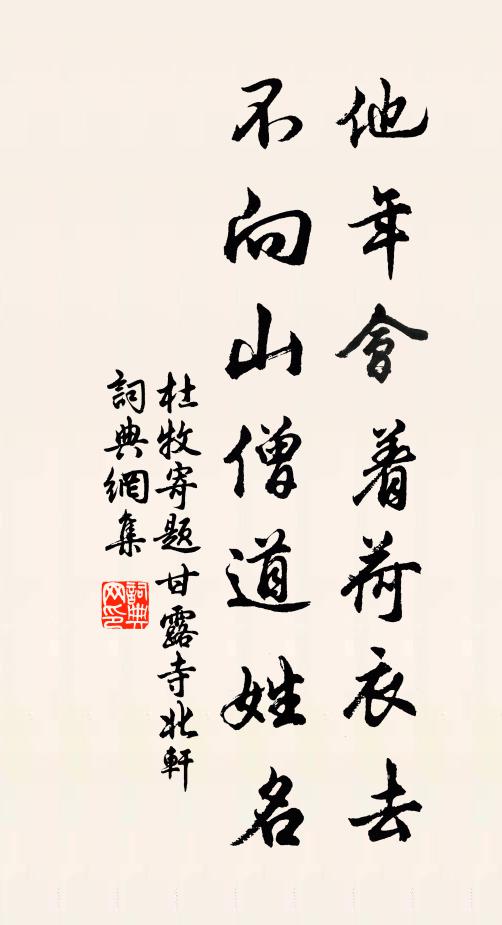 他年會着荷衣去
不向山僧道姓名
杜牧寄题甘露寺北軒
詞典網集
詞典网印